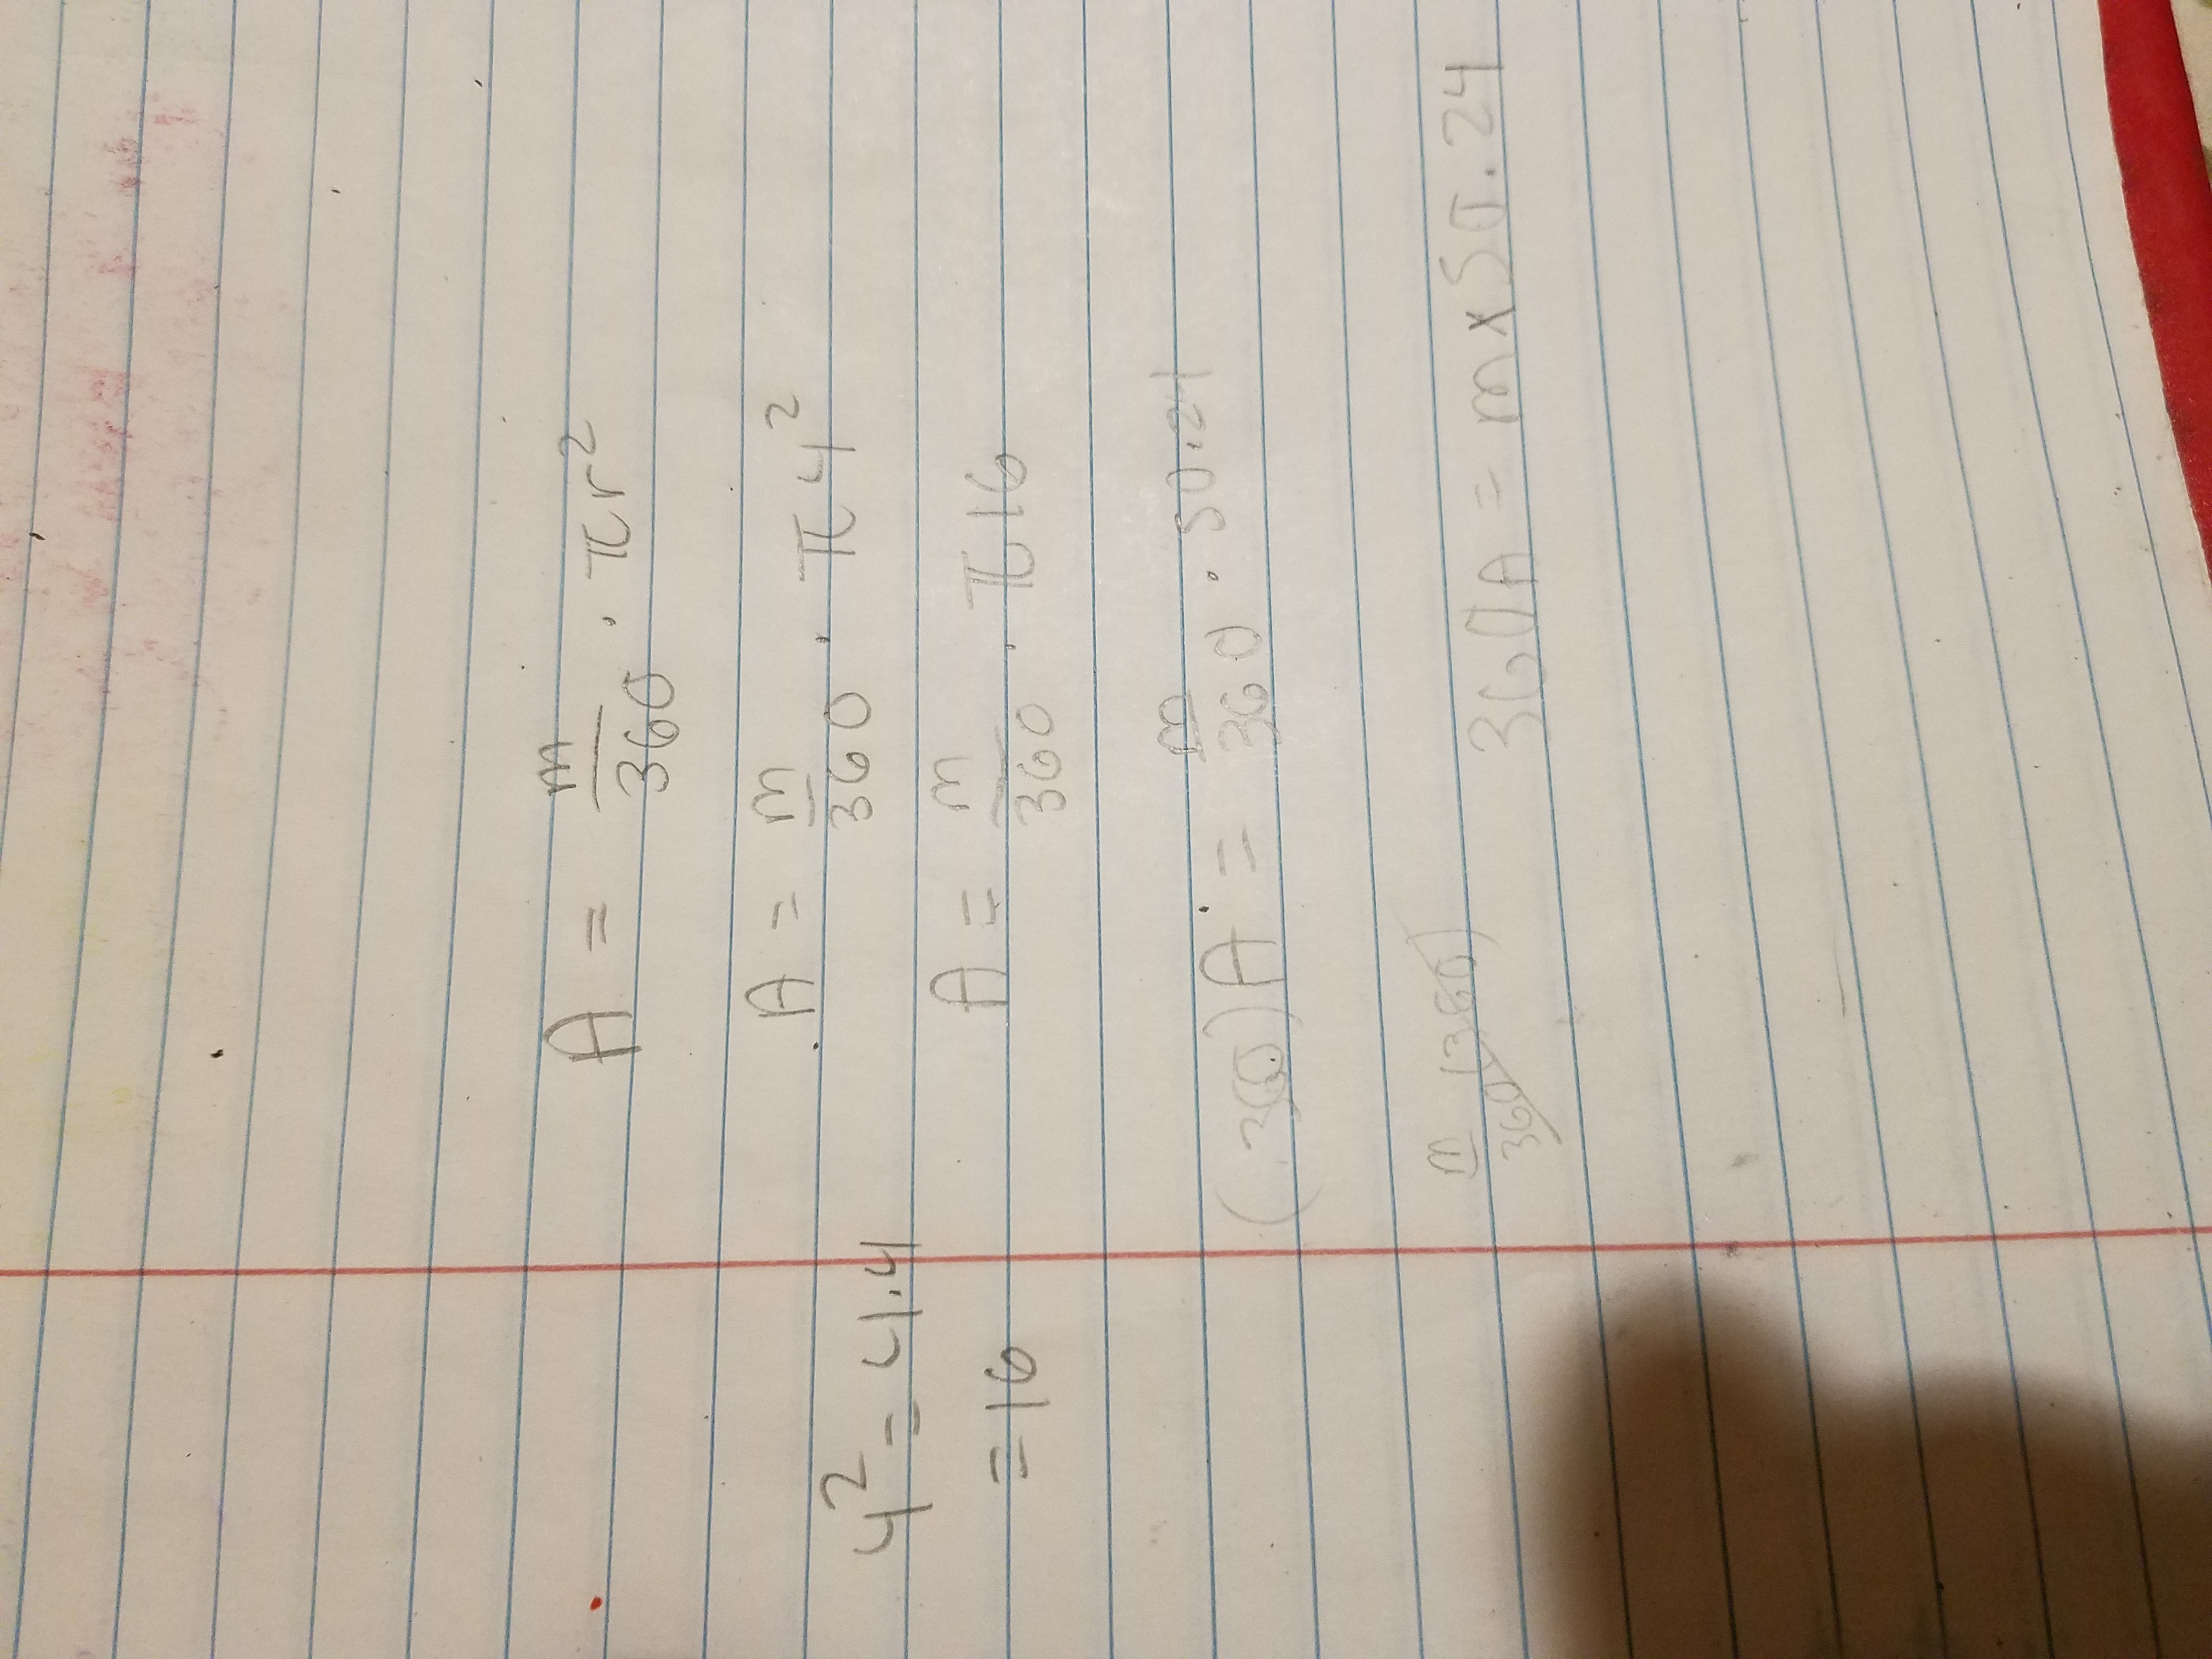 A = m/360 · πr²
A = m/360 · π4²
4² = 4·4
A = m/360 · π16
= 16
(360)A = m/360 · 50.24
m/360 (360)
360A = m×50.24